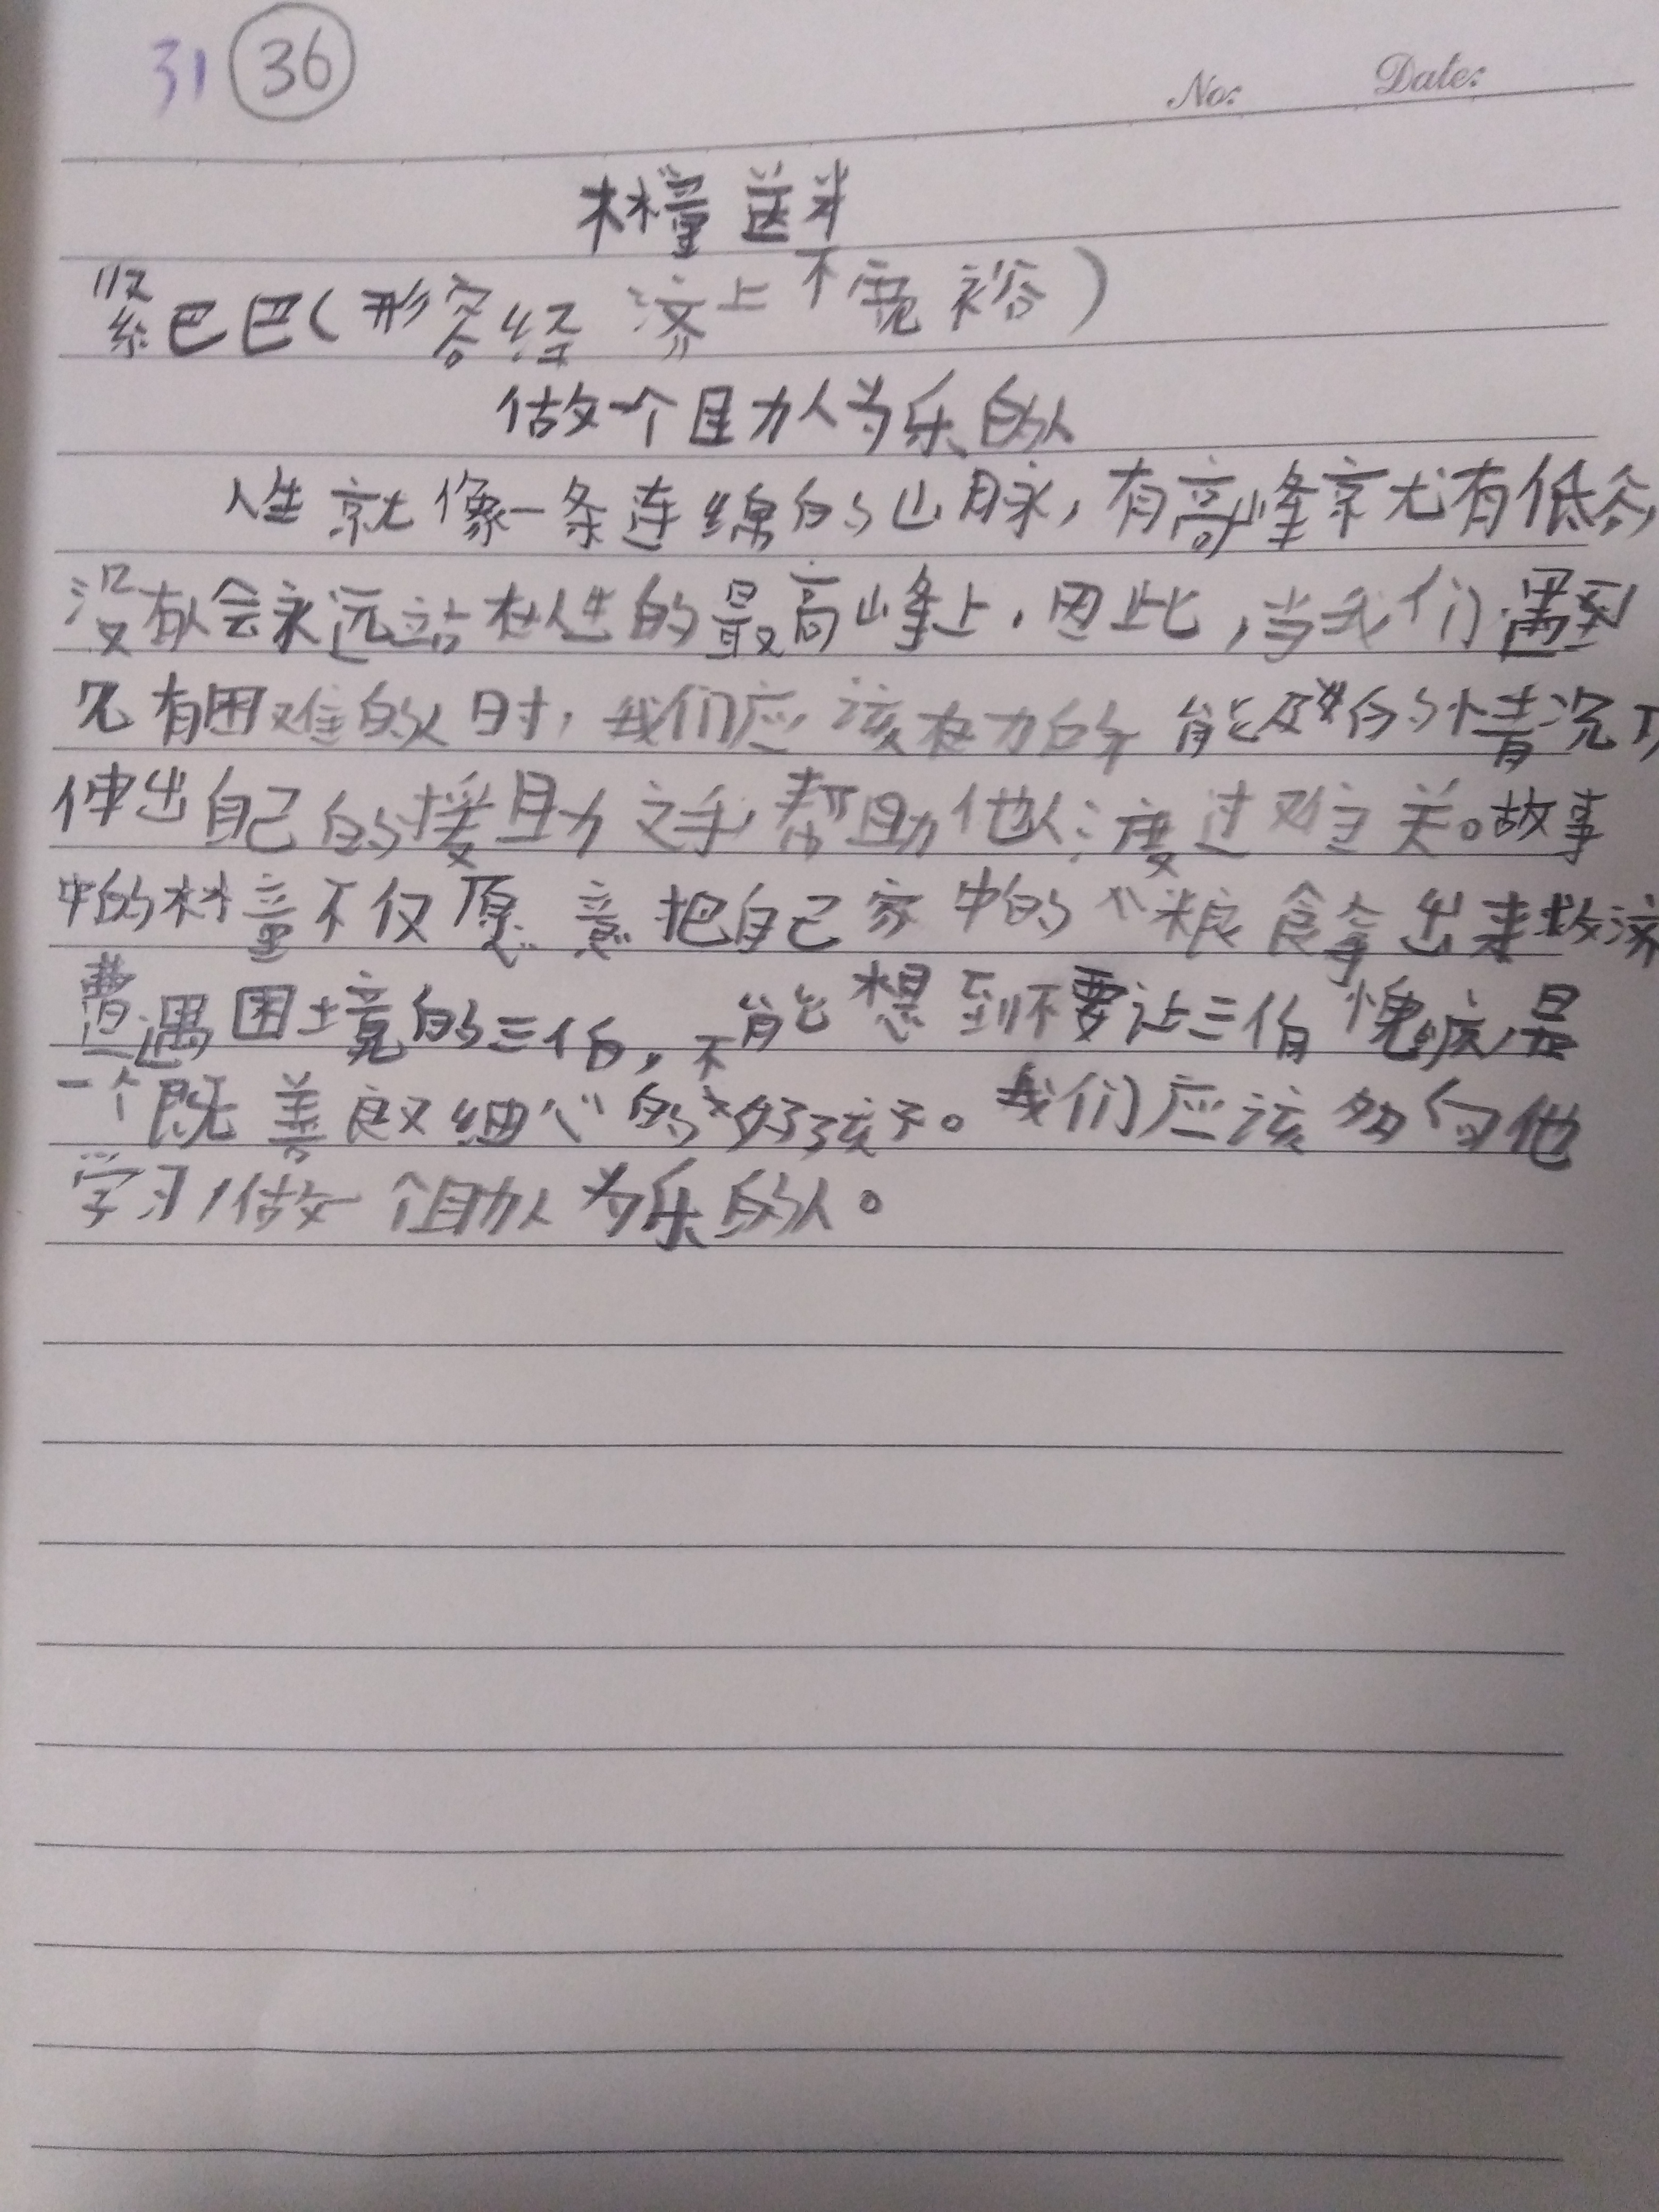 31 36
No: Date:
林童送米
紧巴巴(形容经济上不宽裕)
做一个助人为乐的人
人生就像一条连绵的山脉,有高峰就有低谷,
没有人会永远站在人生的最高峰上,因此,当我们遇到
有困难的人时,我们应该在力所能及的情况下
伸出自己的援助之手,帮助他人渡过难关。故事
中的林童不仅愿意把自己家中的粮食拿出来救济
遭遇困境的三伯,能想到不要让三伯愧疚,是
一个既善良又细心的好孩子。我们应该多向他
学习,做一个助人为乐的人。